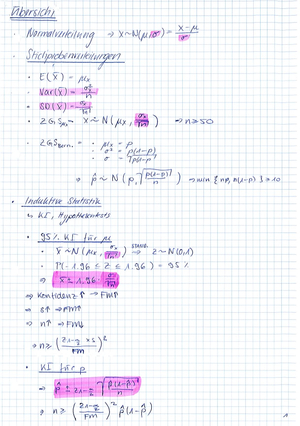 Übersicht
· Normalverteilung → X~N(μ,σ) = x-μ/σ
· Stichprobenverteilungen
· E(X̄) = μx
· Var(X̄) = σ²/n
· SD(X̄) = σx/√n
· ZGS → X̄ ~ N(μx, σx/√n) ⇒ n≥50
· ZGS Bern. = · μx = p
· σ² = p(1-p)
· σ = √p(1-p)
⇒ p̂ ~ N(p, √p(1-p)/n) ⇒ min {np, n(1-p)} ≥ 10
· Induktive Statistik
↳ KI, Hypothesentests
· 95% KI für μ
· X̄ ~ N(μx, σx/√n) ⇒ Z ~ N(0,1)
· P(-1.96 ≤ Z ≤ 1.96) = 95%
⇒ x̄ ± 1.96 · σx/√n
⇒ Konfidenz ↑ → FM↑
⇒ S↑ → FM↑
⇒ n↑ → FM↓
⇒ n ≥ (z1-α/2 × s / FM)²
· KI für p
⇒ p̂ ± z1-α/2 √p̂(1-p̂)/n
⇒ n ≥ (z1-α/2 / FM)² p̂(1-p̂)